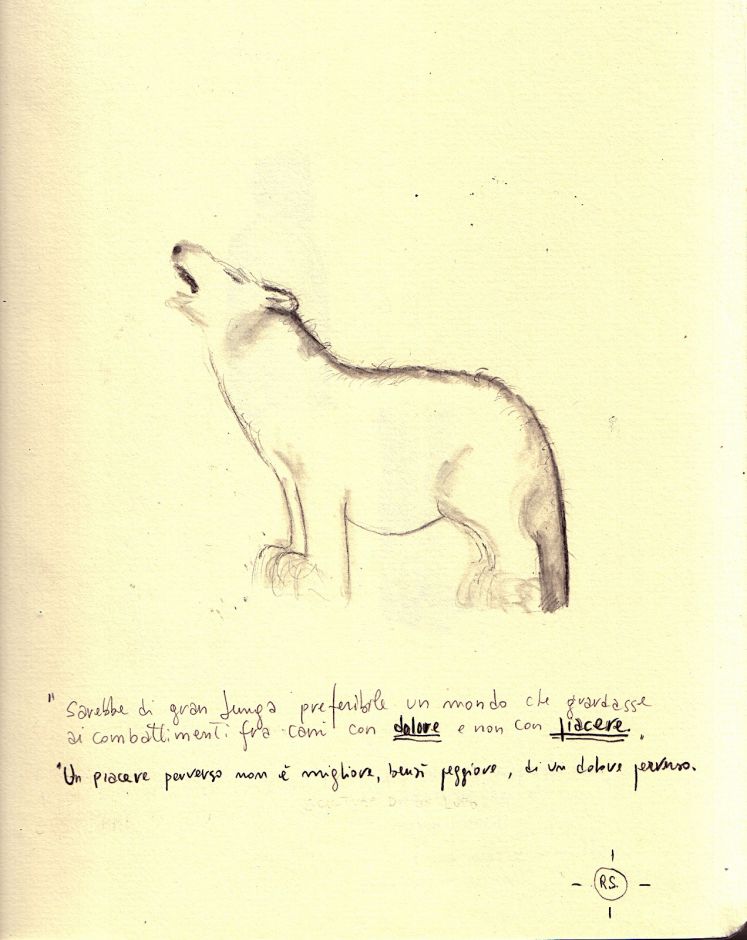 "Sarebbe di gran lunga preferibile un mondo che guardasse
ai combattimenti fra cani con dolore e non con piacere.
"Un piacere perverso non è migliore, bensì peggiore, di un dolore perverso.
R.S.